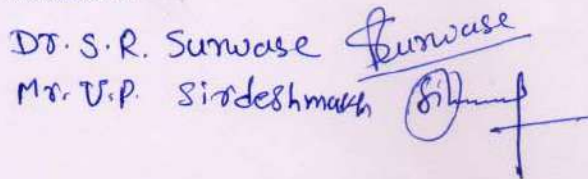 Dr. S.R. Surwase Surwase
Mr. V.P. Sirdeshmukh